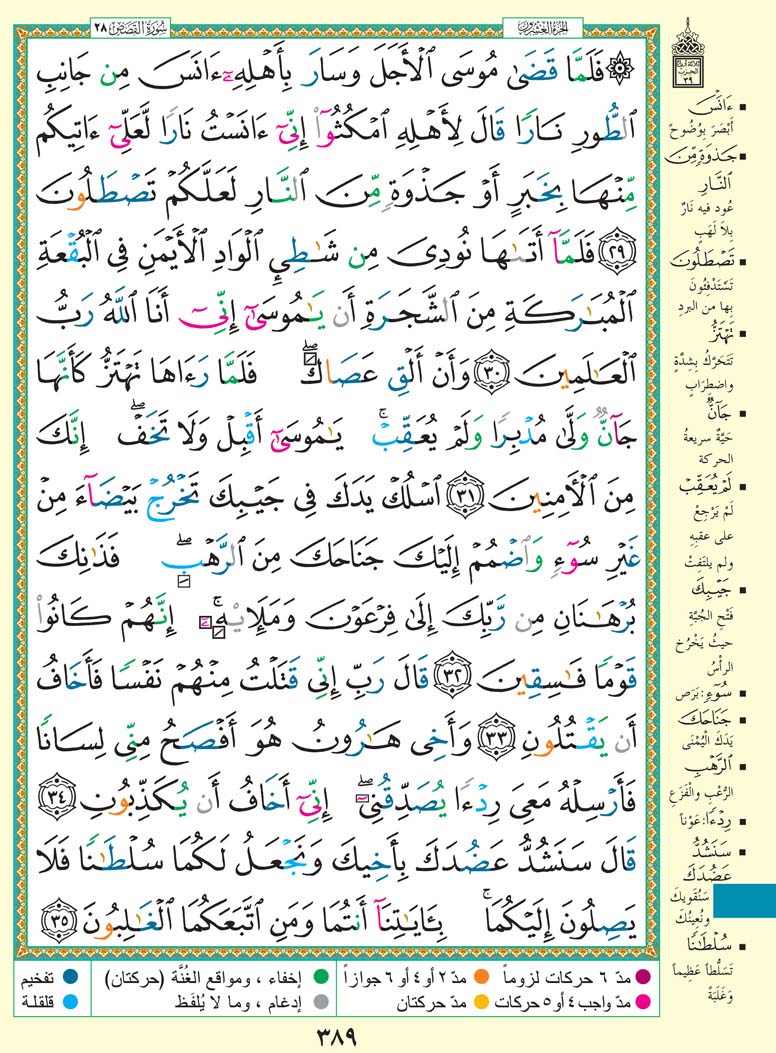 الجزء العشرون
سورة القصص ٢٨
۞ فَلَمَّا قَضَىٰ مُوسَى ٱلْأَجَلَ وَسَارَ بِأَهْلِهِۦٓ ءَانَسَ مِن جَانِبِ
ٱلطُّورِ نَارًا قَالَ لِأَهْلِهِ ٱمْكُثُوٓا۟ إِنِّىٓ ءَانَسْتُ نَارًا لَّعَلِّىٓ ءَاتِيكُم
مِّنْهَا بِخَبَرٍ أَوْ جَذْوَةٍ مِّنَ ٱلنَّارِ لَعَلَّكُمْ تَصْطَلُونَ
٢٩ فَلَمَّآ أَتَىٰهَا نُودِىَ مِن شَٰطِئِ ٱلْوَادِ ٱلْأَيْمَنِ فِى ٱلْبُقْعَةِ
ٱلْمُبَٰرَكَةِ مِنَ ٱلشَّجَرَةِ أَن يَٰمُوسَىٰٓ إِنِّىٓ أَنَا ٱللَّهُ رَبُّ
ٱلْعَٰلَمِينَ ٣٠ وَأَنْ أَلْقِ عَصَاكَ ۖ فَلَمَّا رَءَاهَا تَهْتَزُّ كَأَنَّهَا
جَآنٌّ وَلَّىٰ مُدْبِرًا وَلَمْ يُعَقِّبْ ۚ يَٰمُوسَىٰٓ أَقْبِلْ وَلَا تَخَفْ ۖ إِنَّكَ
مِنَ ٱلْءَامِنِينَ ٣١ ٱسْلُكْ يَدَكَ فِى جَيْبِكَ تَخْرُجْ بَيْضَآءَ مِنْ
غَيْرِ سُوٓءٍ وَٱضْمُمْ إِلَيْكَ جَنَاحَكَ مِنَ ٱلرَّهْبِ ۖ فَذَٰنِكَ
بُرْهَٰنَانِ مِن رَّبِّكَ إِلَىٰ فِرْعَوْنَ وَمَلَإِي۟هِۦٓ ۚ إِنَّهُمْ كَانُوا۟
قَوْمًا فَٰسِقِينَ ٣٢ قَالَ رَبِّ إِنِّى قَتَلْتُ مِنْهُمْ نَفْسًا فَأَخَافُ
أَن يَقْتُلُونِ ٣٣ وَأَخِى هَٰرُونُ هُوَ أَفْصَحُ مِنِّى لِسَانًا
فَأَرْسِلْهُ مَعِىَ رِدْءًا يُصَدِّقُنِىٓ ۖ إِنِّىٓ أَخَافُ أَن يُكَذِّبُونِ ٣٤
قَالَ سَنَشُدُّ عَضُدَكَ بِأَخِيكَ وَنَجْعَلُ لَكُمَا سُلْطَٰنًا فَلَا
يَصِلُونَ إِلَيْكُمَا ۚ بِـَٔايَٰتِنَآ أَنتُمَا وَمَنِ ٱتَّبَعَكُمَا ٱلْغَٰلِبُونَ ٣٥
الحزب
٣٩
ءَانَسَ
أَبْصَرَ بِوُضُوحٍ
جَذْوَةٍ مِّنَ
النَّارِ
عُود فيه نَارٌ
بِلاَ لَهَبٍ
تَصْطَلُونَ
تَسْتَدْفِئُونَ
بها من البردِ
تَهْتَزُّ
تَتَحَرَّكُ بِشِدَّةٍ
واضطِرَابٍ
جَآنٌّ
حَيَّةٌ سريعةُ
الحركة
لَمْ يُعَقِّبْ
لَمْ يَرْجِعْ
على عقبِهِ
ولم يلتَفِتْ
جَيْبِكَ
فَتْحِ الجُبَّةِ
حيثُ يَخْرُجُ
الرأسُ
سُوٓءٍ: بَرَص
جَنَاحَكَ
يَدَكَ الْيُمْنَى
الرَّهْبِ
الرُّعْبِ والْفَزَعِ
رِدْءًا: عَوْناً
سَنَشُدُّ
عَضُدَكَ
سَنُقَوِيكَ
ونُعِينُكَ
سُلْطَٰنًا
تَسَلُّطاً عَظِيماً
وَغَلَبَةً
مدّ ٦ حركات لزوماً
مدّ ٢ أو ٤ أو ٦ جوازاً
إخفاء ، ومواقع الغُنَّة (حركتان)
تفخيم
مدّ واجب ٤ أو ٥ حركات
مدّ حركتان
إدغام ، وما لا يُلفَظ
قلقلة
٣٨٩